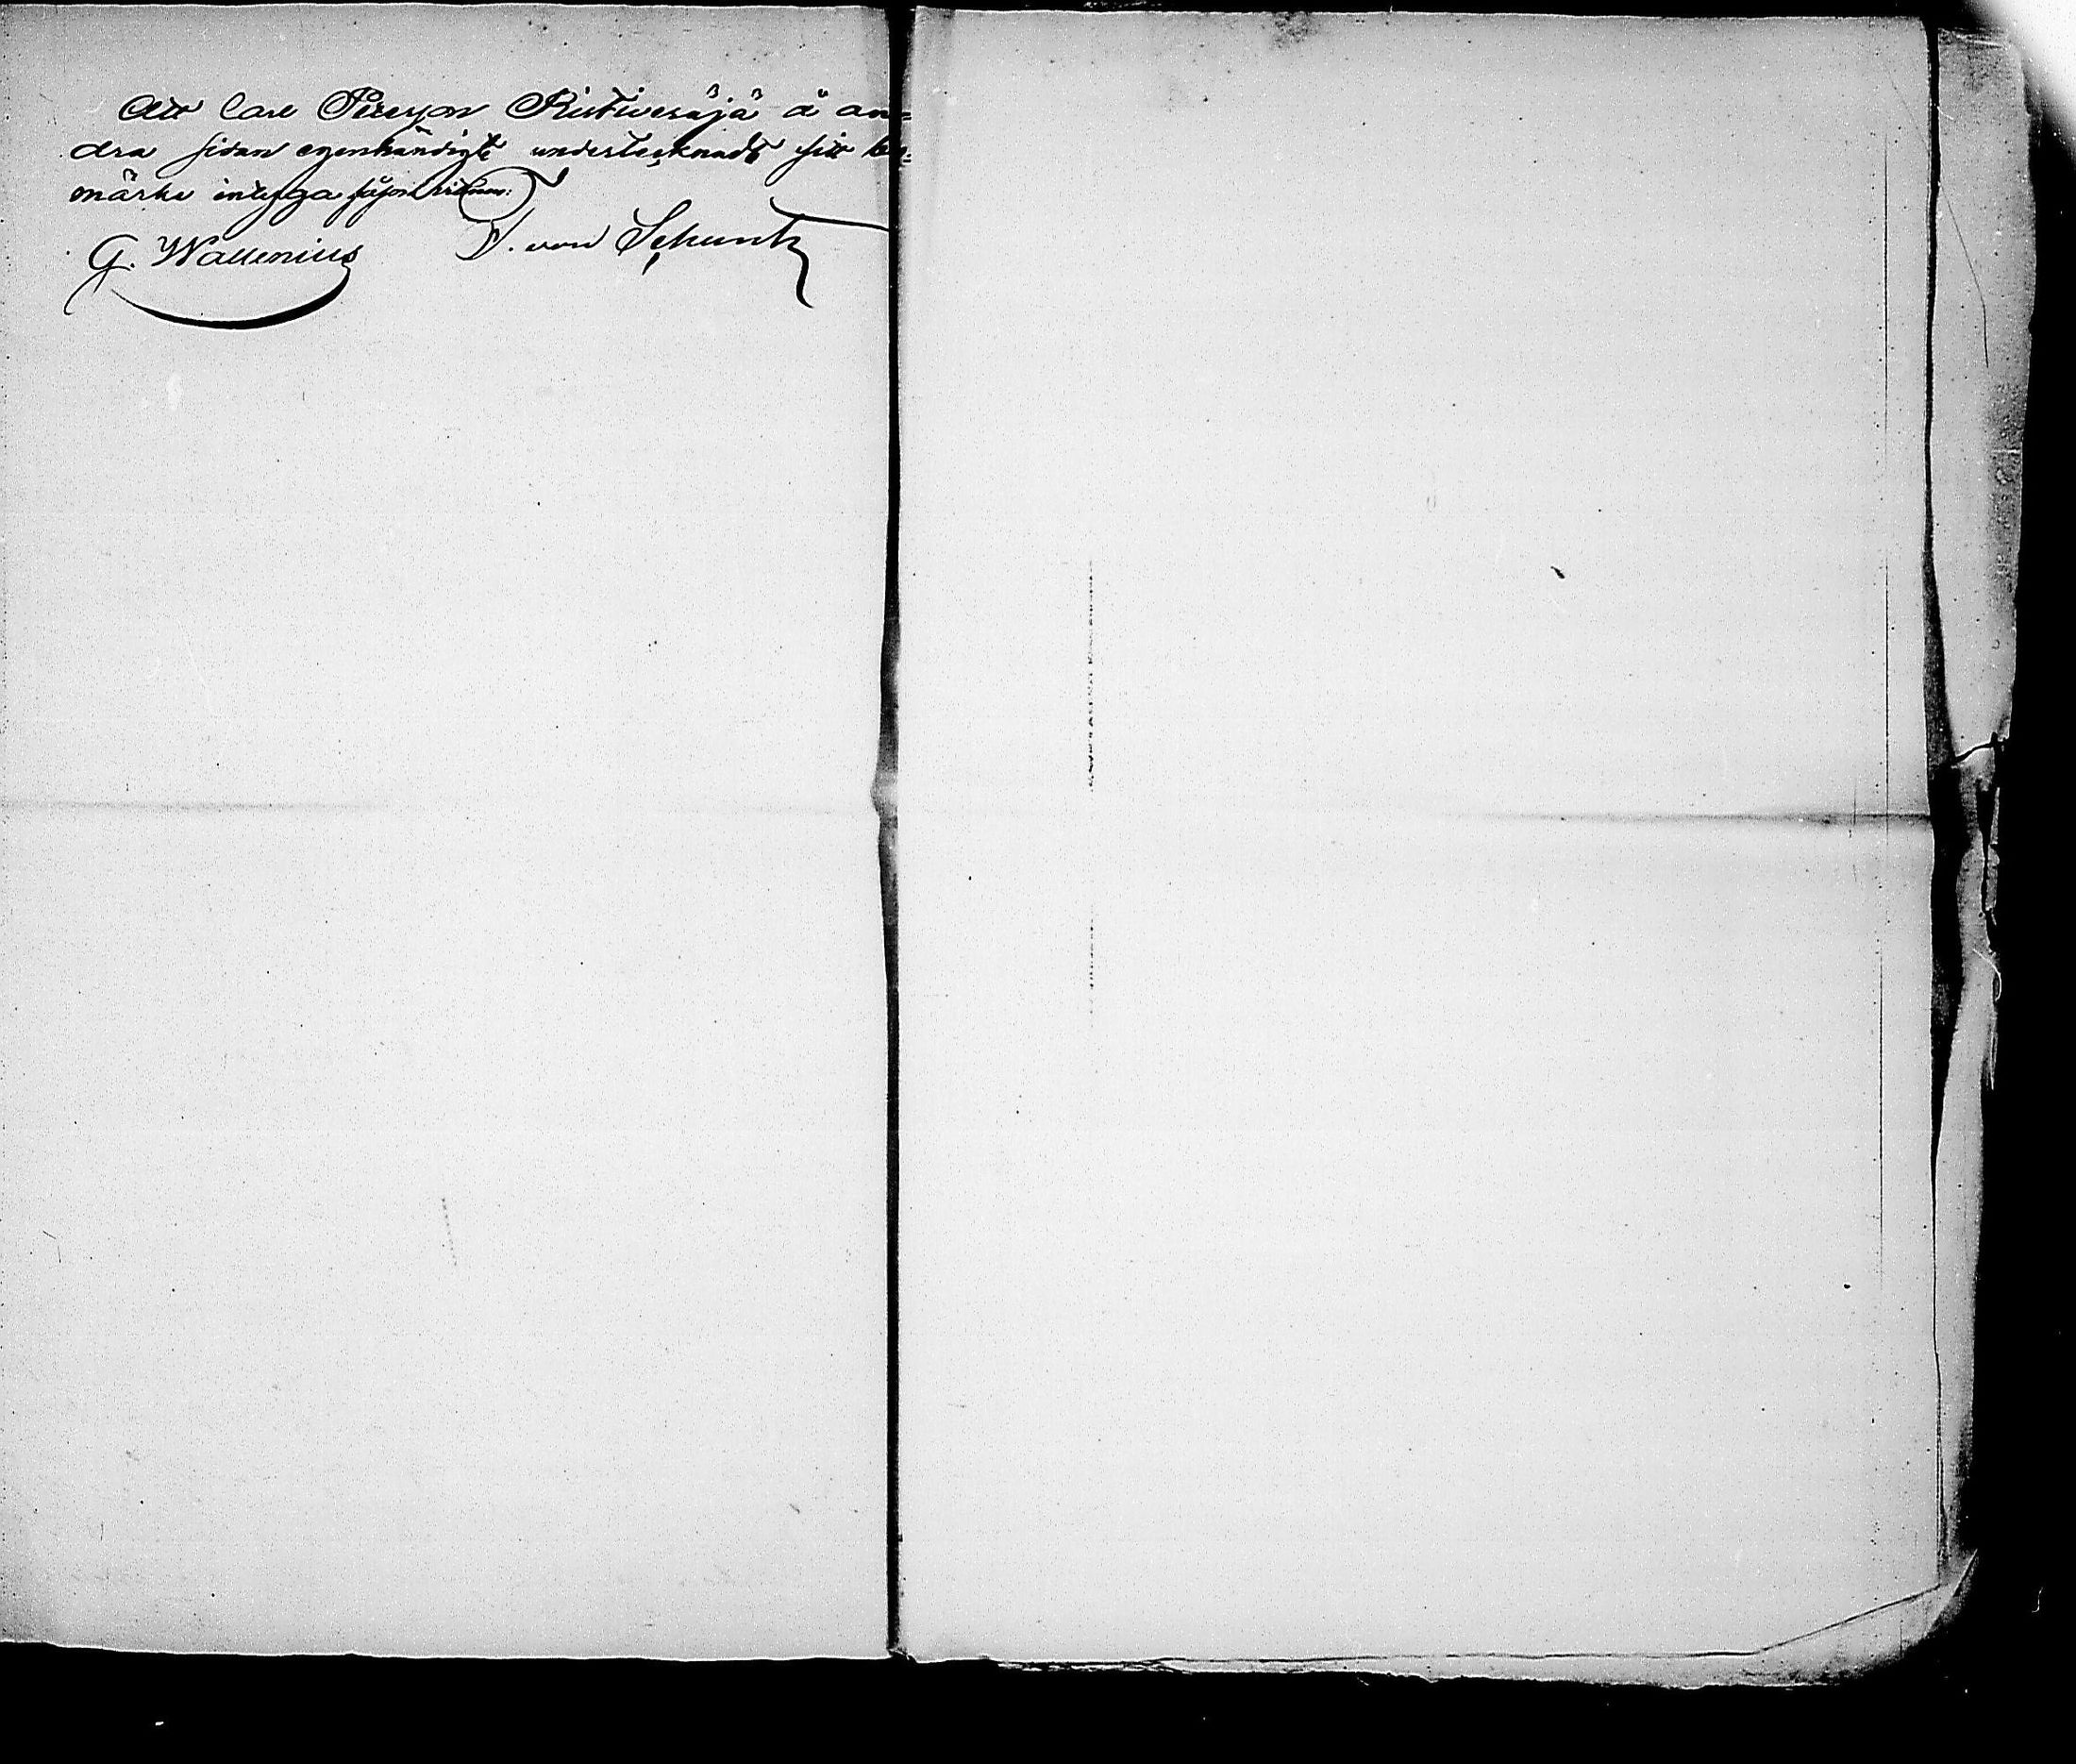 Att Carl Persson Ristivesäjä å an=
dra sidan egenhändigt undertecknadt sitt bo=
märke intyga såsom vittnen:
G. Wallenius F. von Schantz